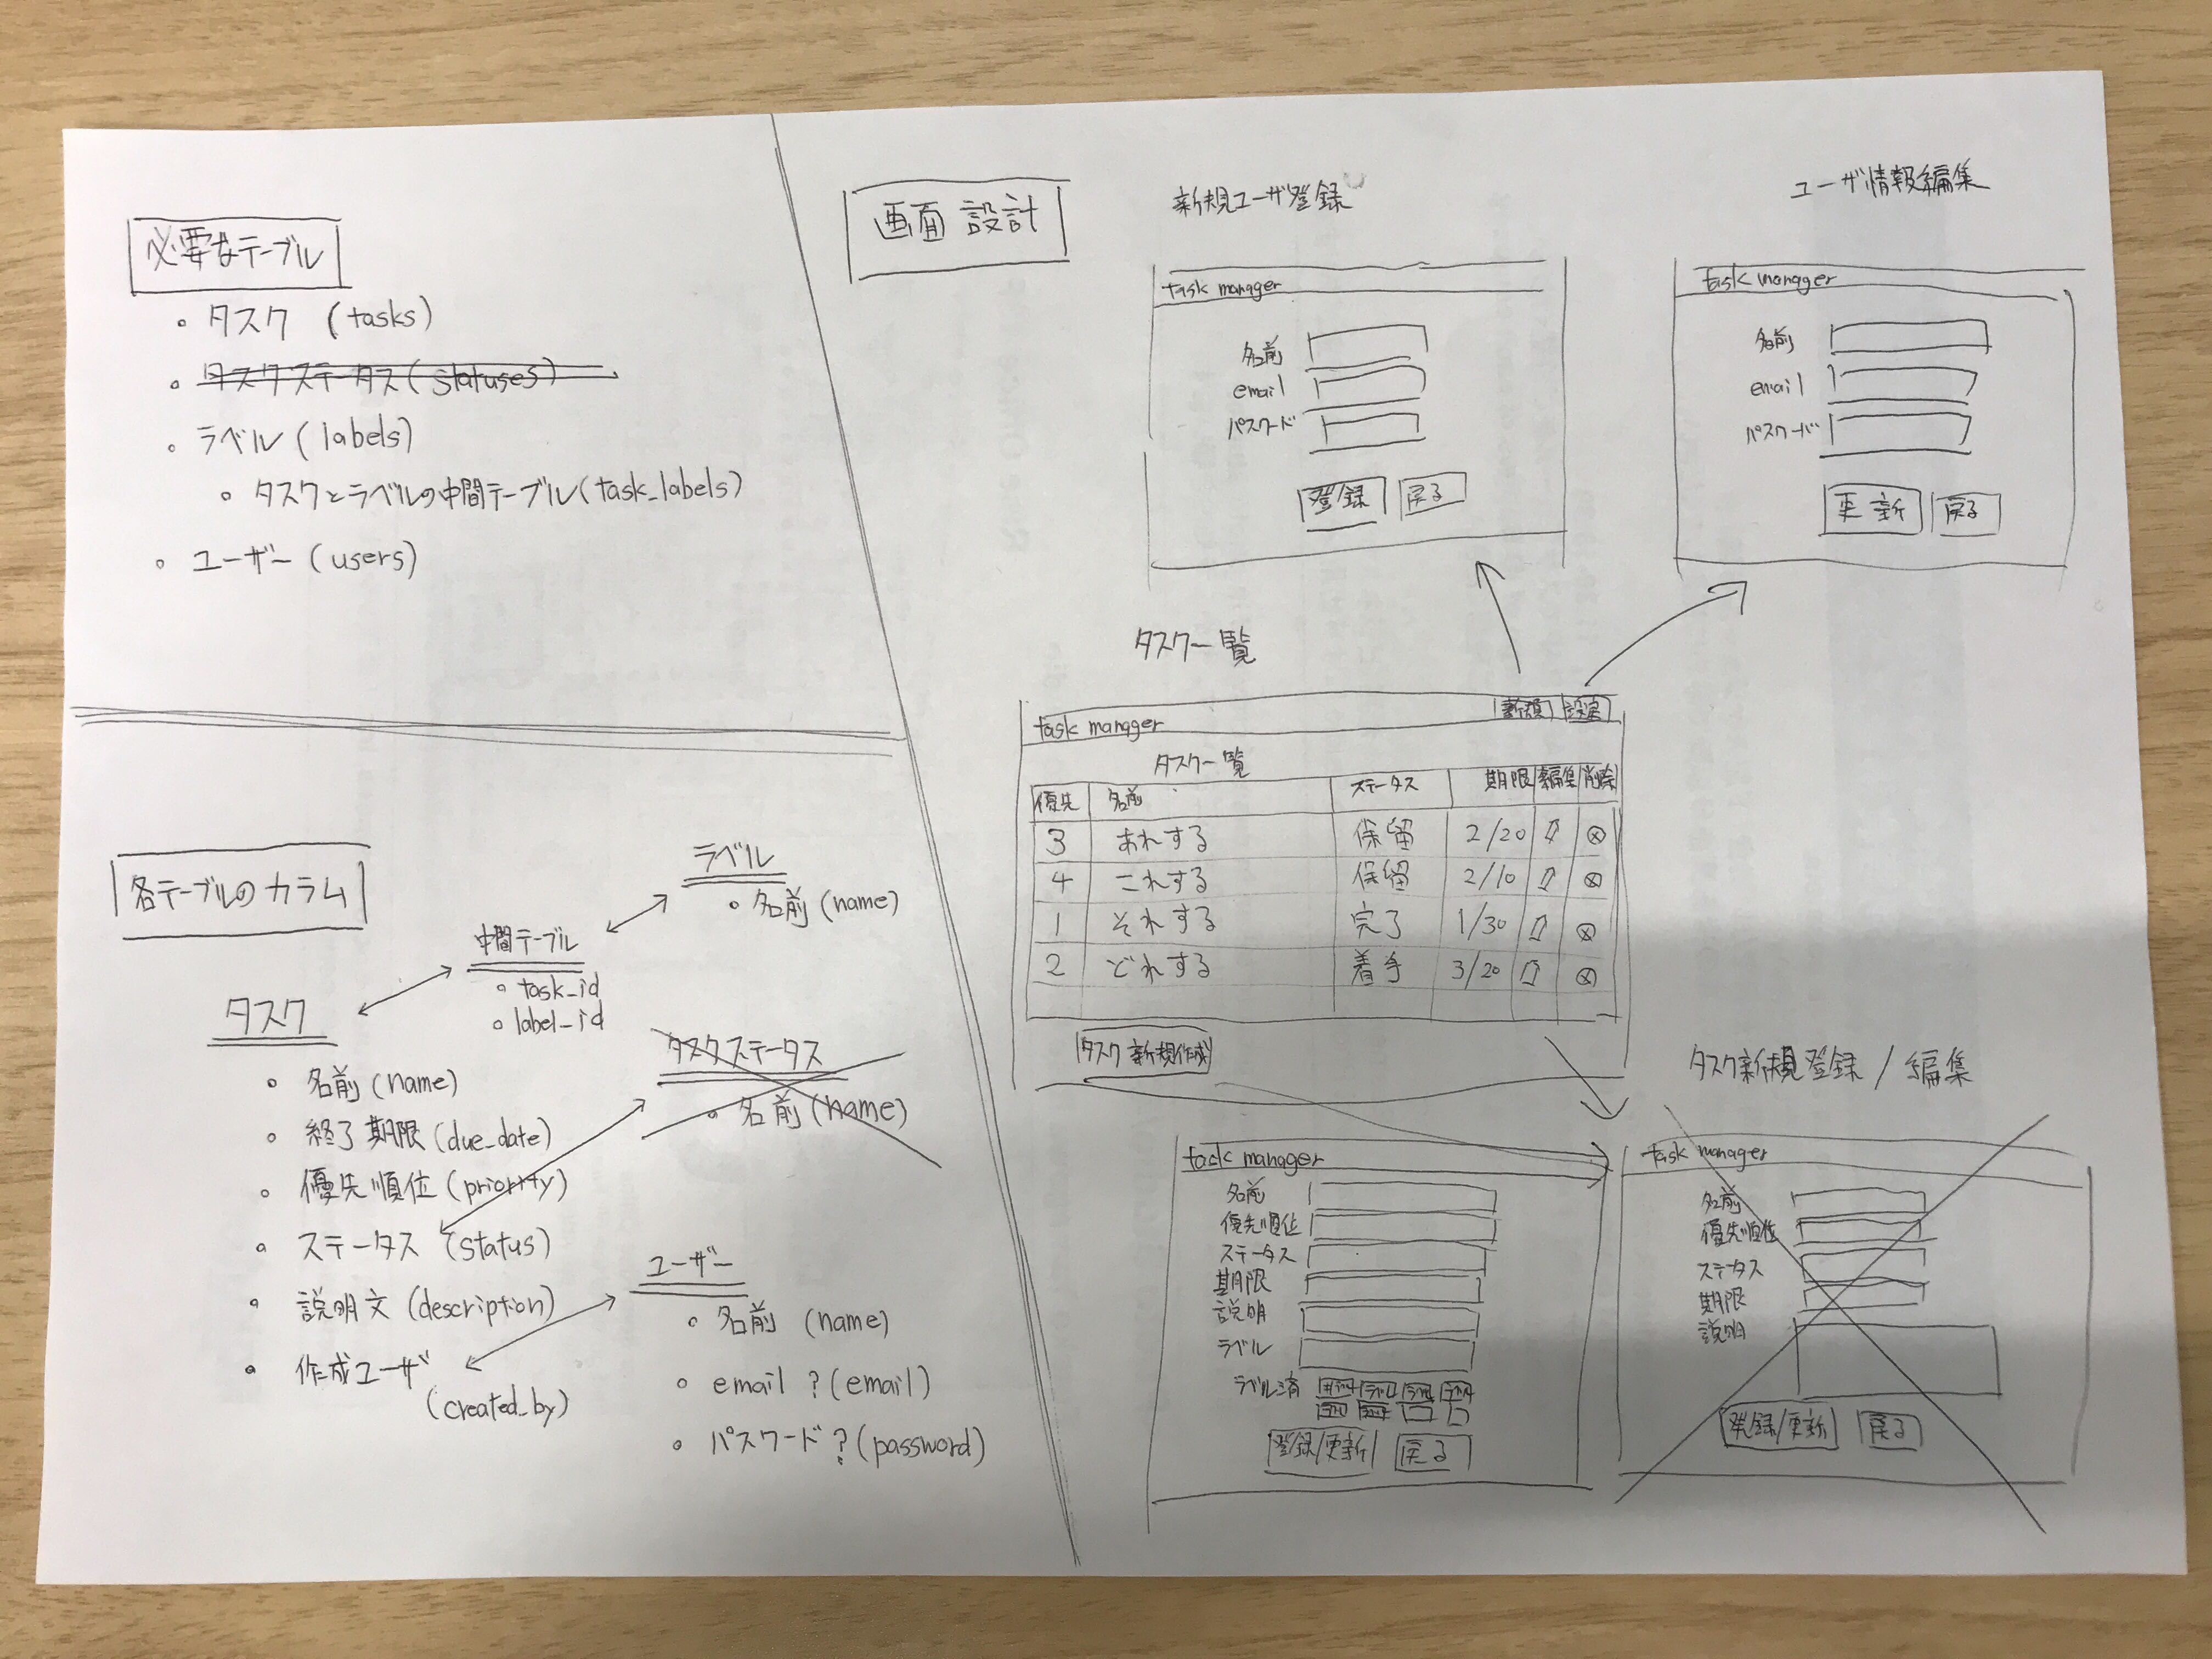 必要なテーブル
タスク (tasks)
タスクステータス (statuses)
ラベル (labels)
タスクとラベルの中間テーブル (task_labels)
ユーザー (users)
各テーブルのカラム
ラベル
名前 (name)
中間テーブル
task_id
label_id
タスク
名前 (name)
終了期限 (due_date)
優先順位 (priority)
ステータス (status)
説明文 (description)
作成ユーザ
(created_by)
タスクステータス
名前 (name)
ユーザー
名前 (name)
email ? (email)
パスワード ? (password)
画面設計
新規ユーザ登録
task manager
名前
email
パスワード
登録 戻る
ユーザ情報編集
task manager
名前
email
パスワード
更新 戻る
タスク一覧
task manager 設定
タスク一覧
優先 名前 ステータス 期限 編集 削除
3 あれする 保留 2/20
4 これする 保留 2/10
1 それする 完了 1/30
2 どれする 着手 3/20
タスク新規作成
タスク新規登録 / 編集
task manager
名前
優先順位
ステータス
期限
説明
ラベル
ラベル済
登録/更新 戻る
task manager
名前
優先順位
ステータス
期限
説明
登録/更新 戻る